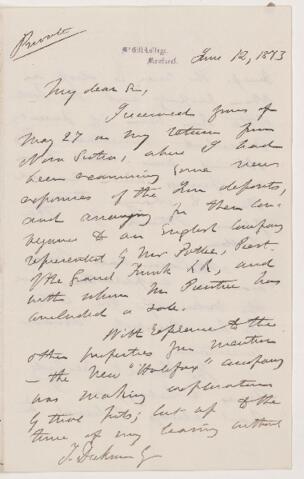 Private
McGill College,
Montreal.
June 12, 1873
My dear Sir,
I received yours of
May 27 on my return from
Nova Scotia, where I had
been examining some new
exposures of the Iron deposits,
and arranging for their con-
veyance to an English Company
represented by Mr Potter, Prest.
of the Grand Trunk RR, and
with whom Mr has
concluded a sale.
With reference to the
other properties you mention
— the New "Halifax" company
was making explorations
by trial pits; but up to the
time of my leaving without
J. Esq